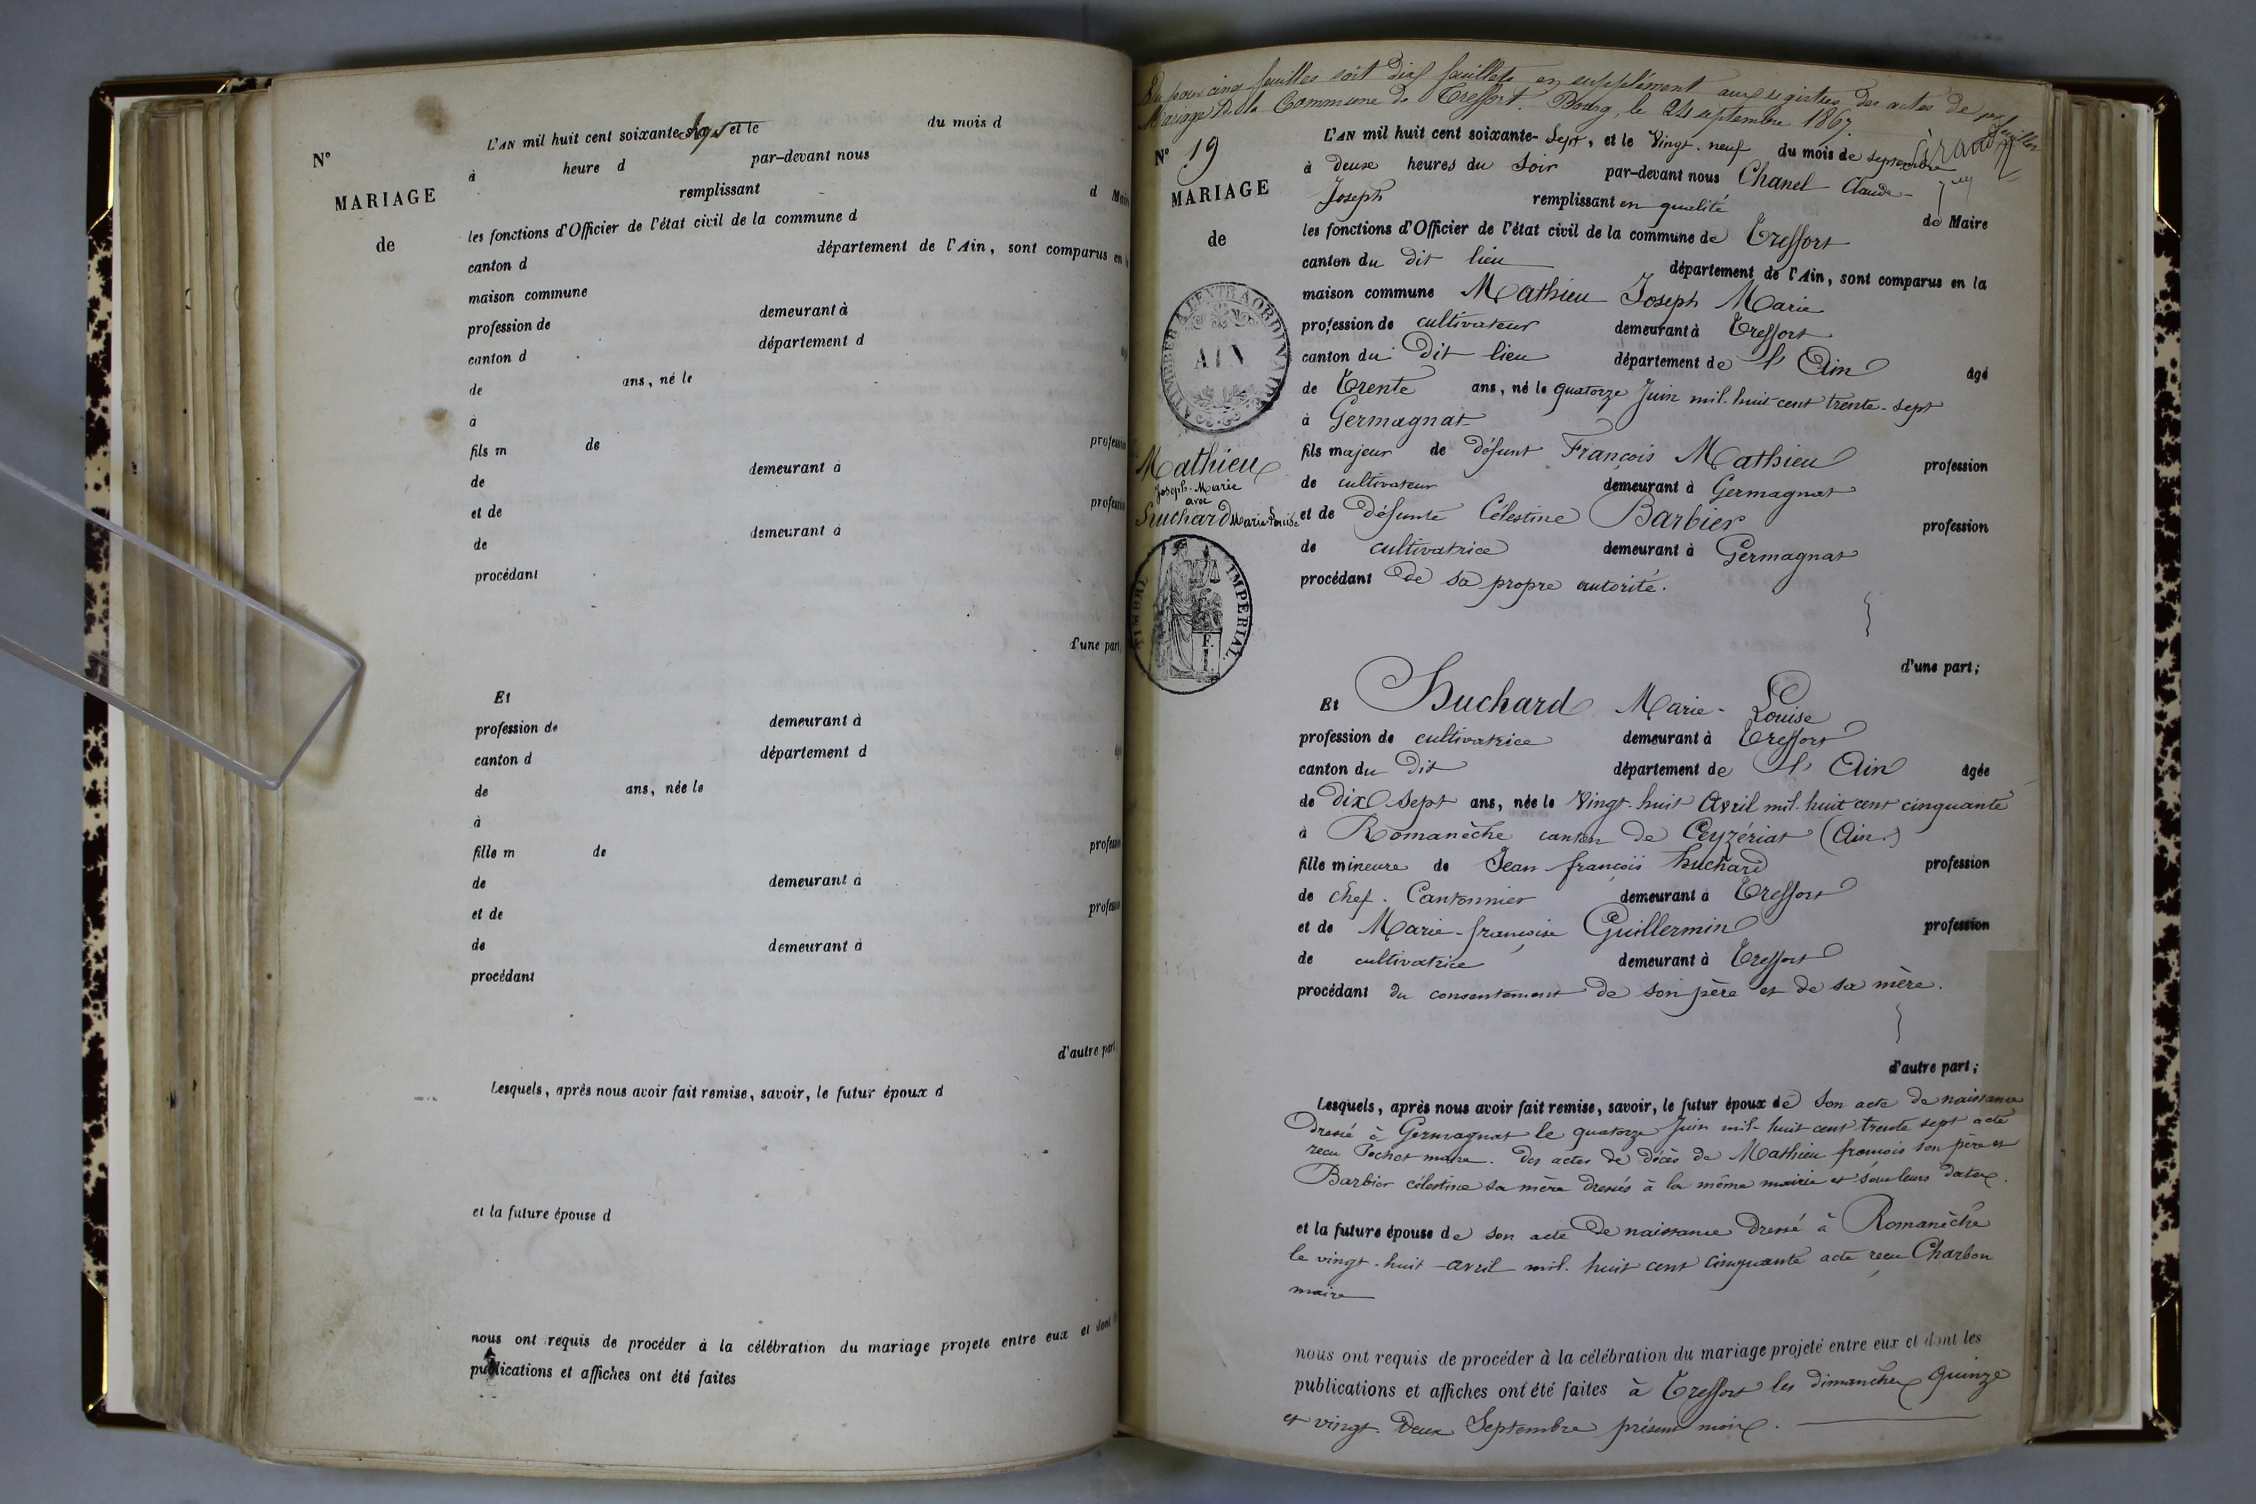 N°
MARIAGE
de
L'AN mil huit cent soixante-sept et le du mois d
à heure d par-devant nous
remplissant d Maire
les fonctions d'Officier de l'état civil de la commune d
canton d département de l'Ain, sont comparus en la
maison commune
profession de demeurant à
canton d département d
de ans, né le
à
fils m de profession
de demeurant à
et de profession
de demeurant à
procédant
d'une part;
Et
profession de demeurant à
canton d département d
de ans, née le
à
fille m de profession
de demeurant à
et de profession
de demeurant à
procédant
d'autre part;
Lesquels, après nous avoir fait remise, savoir, le futur époux d
et la future épouse d
nous ont requis de procéder à la célébration du mariage projeté entre eux et dont les
publications et affiches ont été faites
cinq feuilles soit dix feuillets en supplément aux registres des actes de
Mariage de la Commune de Treffort. Bourg, le 24 septembre 1867.
N° 19
MARIAGE
de
A TIMBRER A L'EXTRAORDINAIRE
AIN
Mathieu
Joseph-Marie
avec
Suchard Marie-Louise
TIMBRE IMPERIAL
L'AN mil huit cent soixante-sept, et le Vingt-neuf du mois de septembre
à deux heures du Soir par-devant nous Chanel Claude-
Joseph remplissant en qualité de Maire
les fonctions d'Officier de l'état civil de la commune de Treffort
canton du dit lieu département de l'Ain, sont comparus en la
maison commune Mathieu Joseph Marie
profession de cultivateur demeurant à Treffort
canton du dit lieu département de l'Ain âgé
de Trente ans, né le quatorze Juin mil-huit-cent trente-sept
à Germagnat
fils majeur de défunt François Mathieu profession
de cultivateur demeurant à Germagnat
et de défunte Célestine Barbier profession
de cultivatrice demeurant à Germagnat
procédant de sa propre autorité.
d'une part;
Et Suchard Marie-Louise
profession de cultivatrice demeurant à Treffort
canton du dit département de l'Ain âgée
de dix-sept ans, née le Vingt-huit Avril mil-huit cent cinquante
à Romanèche canton de Ceyzériat (Ain.)
fille mineure de Jean françois Suchard profession
de chef-Cantonnier demeurant à Treffort
et de Marie-françoise Guillermin profession
de cultivatrice demeurant à Treffort
procédant du consentement de son père et de sa mère.
d'autre part;
Lesquels, après nous avoir fait remise, savoir, le futur époux de son acte de naissance
dressé à Germagnat le quatorze Juin mil-huit cent trente sept acte
reçu Pochet maire. Des actes de décès de Mathieu françois son père et
Barbier célestine sa mère dressés à la même mairie et sous leurs dates.
et la future épouse de son acte de naissance dressé à Romanèche
le vingt-huit avril mil-huit cent cinquante acte reçu Charbon
maire
nous ont requis de procéder à la célébration du mariage projeté entre eux et dont les
publications et affiches ont été faites à Treffort les dimanches quinze
et vingt-deux Septembre présent mois.